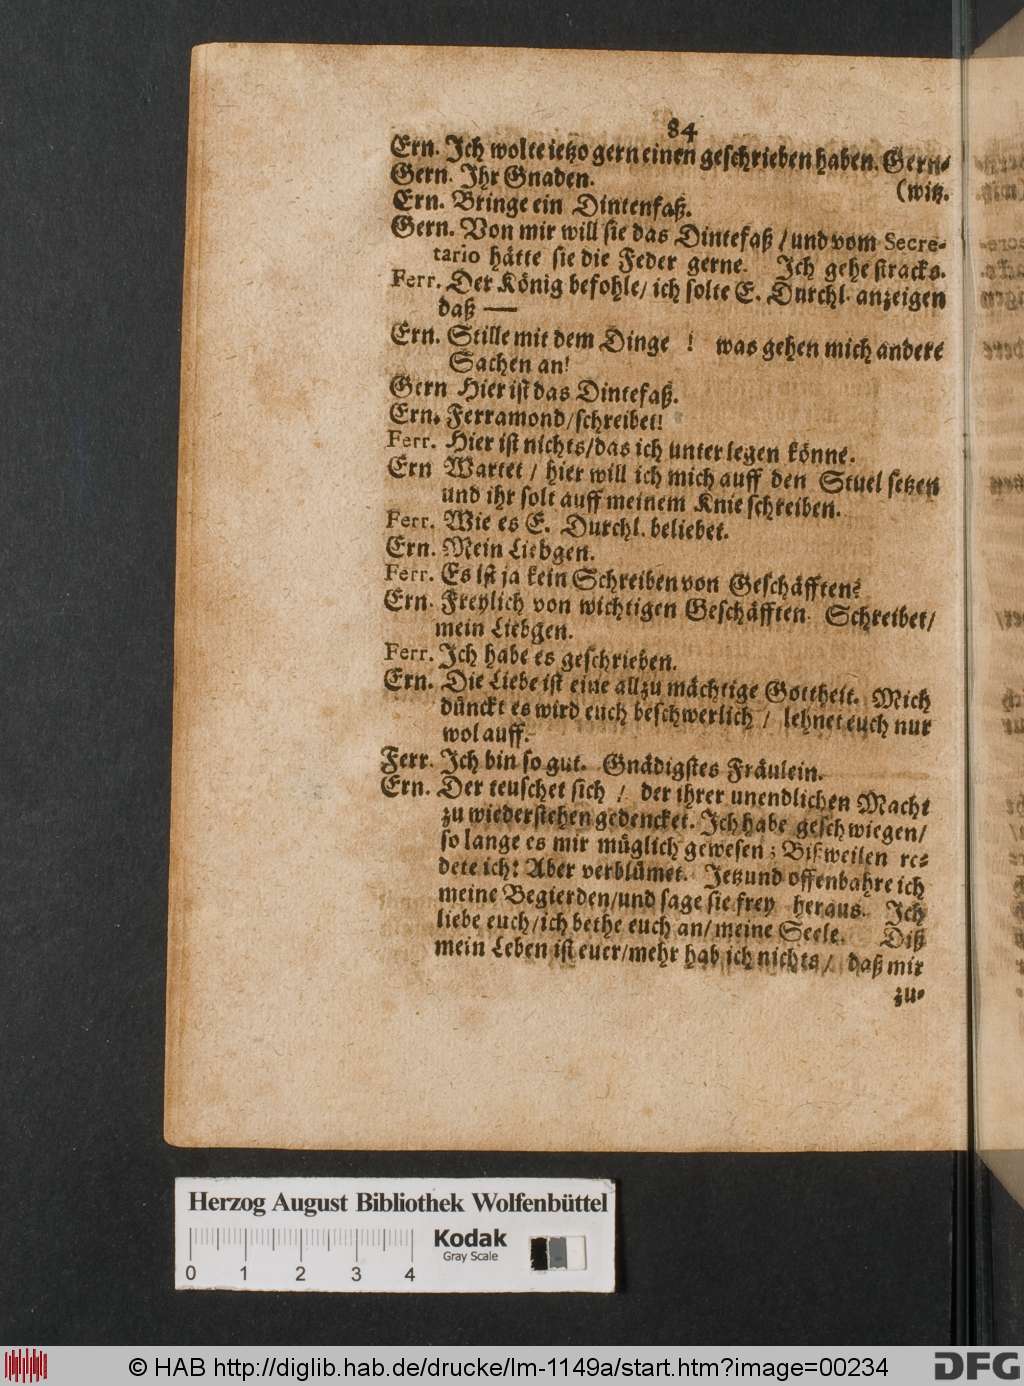 84
Ern. Ich wolte ietzo gern einen geschrieben haben. Gern-
Gern. Ihr Gnaden. (witz.
Ern. Bringe ein Dintenfaß.
Gern. Von mir will sie das Dintefaß / und vom Secre-
tario hätte sie die Feder gerne. Ich gehe stracks.
Ferr. Der König befohle / ich solte E. Durchl. anzeigen
daß —
Ern. Stille mit dem Dinge ! was gehen mich andere
Sachen an!
Gern Hier ist das Dintefaß.
Ern. Ferramond / schreibet!
Ferr. Hier ist nichts / das ich unterlegen könne.
Ern Wartet / hier will ich mich auff den Stuel setzen
und ihr solt auff meinem Knie schreiben.
Ferr. Wie es E. Durchl. beliebet.
Ern. Mein Liebgen.
Ferr. Es ist ja kein Schreiben von Geschäfften?
Ern. Freylich von wichtigen Geschäfften. Schreibet /
mein Liebgen.
Ferr. Ich habe es geschrieben.
Ern. Die Liebe ist eine allzu mächtige Gottheit. Mich
dünckt es wird euch beschwerlich / lehnet euch nur
wol auff.
Ferr. Ich bin so gut. Gnädigstes Fräulein.
Ern. Der teuschet sich / der ihrer unendlichen Macht
zu wiederstehen gedencket. Ich habe geschwiegen /
so lange es mir müglich gewesen ; Bißweilen re-
dete ich: Aber verblümet. Jetzund offenbahre ich
meine Begierden / und sage sie frey heraus. Ich
liebe euch / ich bethe euch an / meine Seele. Diß
mein Leben ist euer / mehr hab ich nichts / daß mir
zu-
Herzog August Bibliothek Wolfenbüttel
Kodak
Gray Scale
0 1 2 3 4
© HAB http://diglib.hab.de/drucke/lm-1149a/start.htm?image=00234
DFG